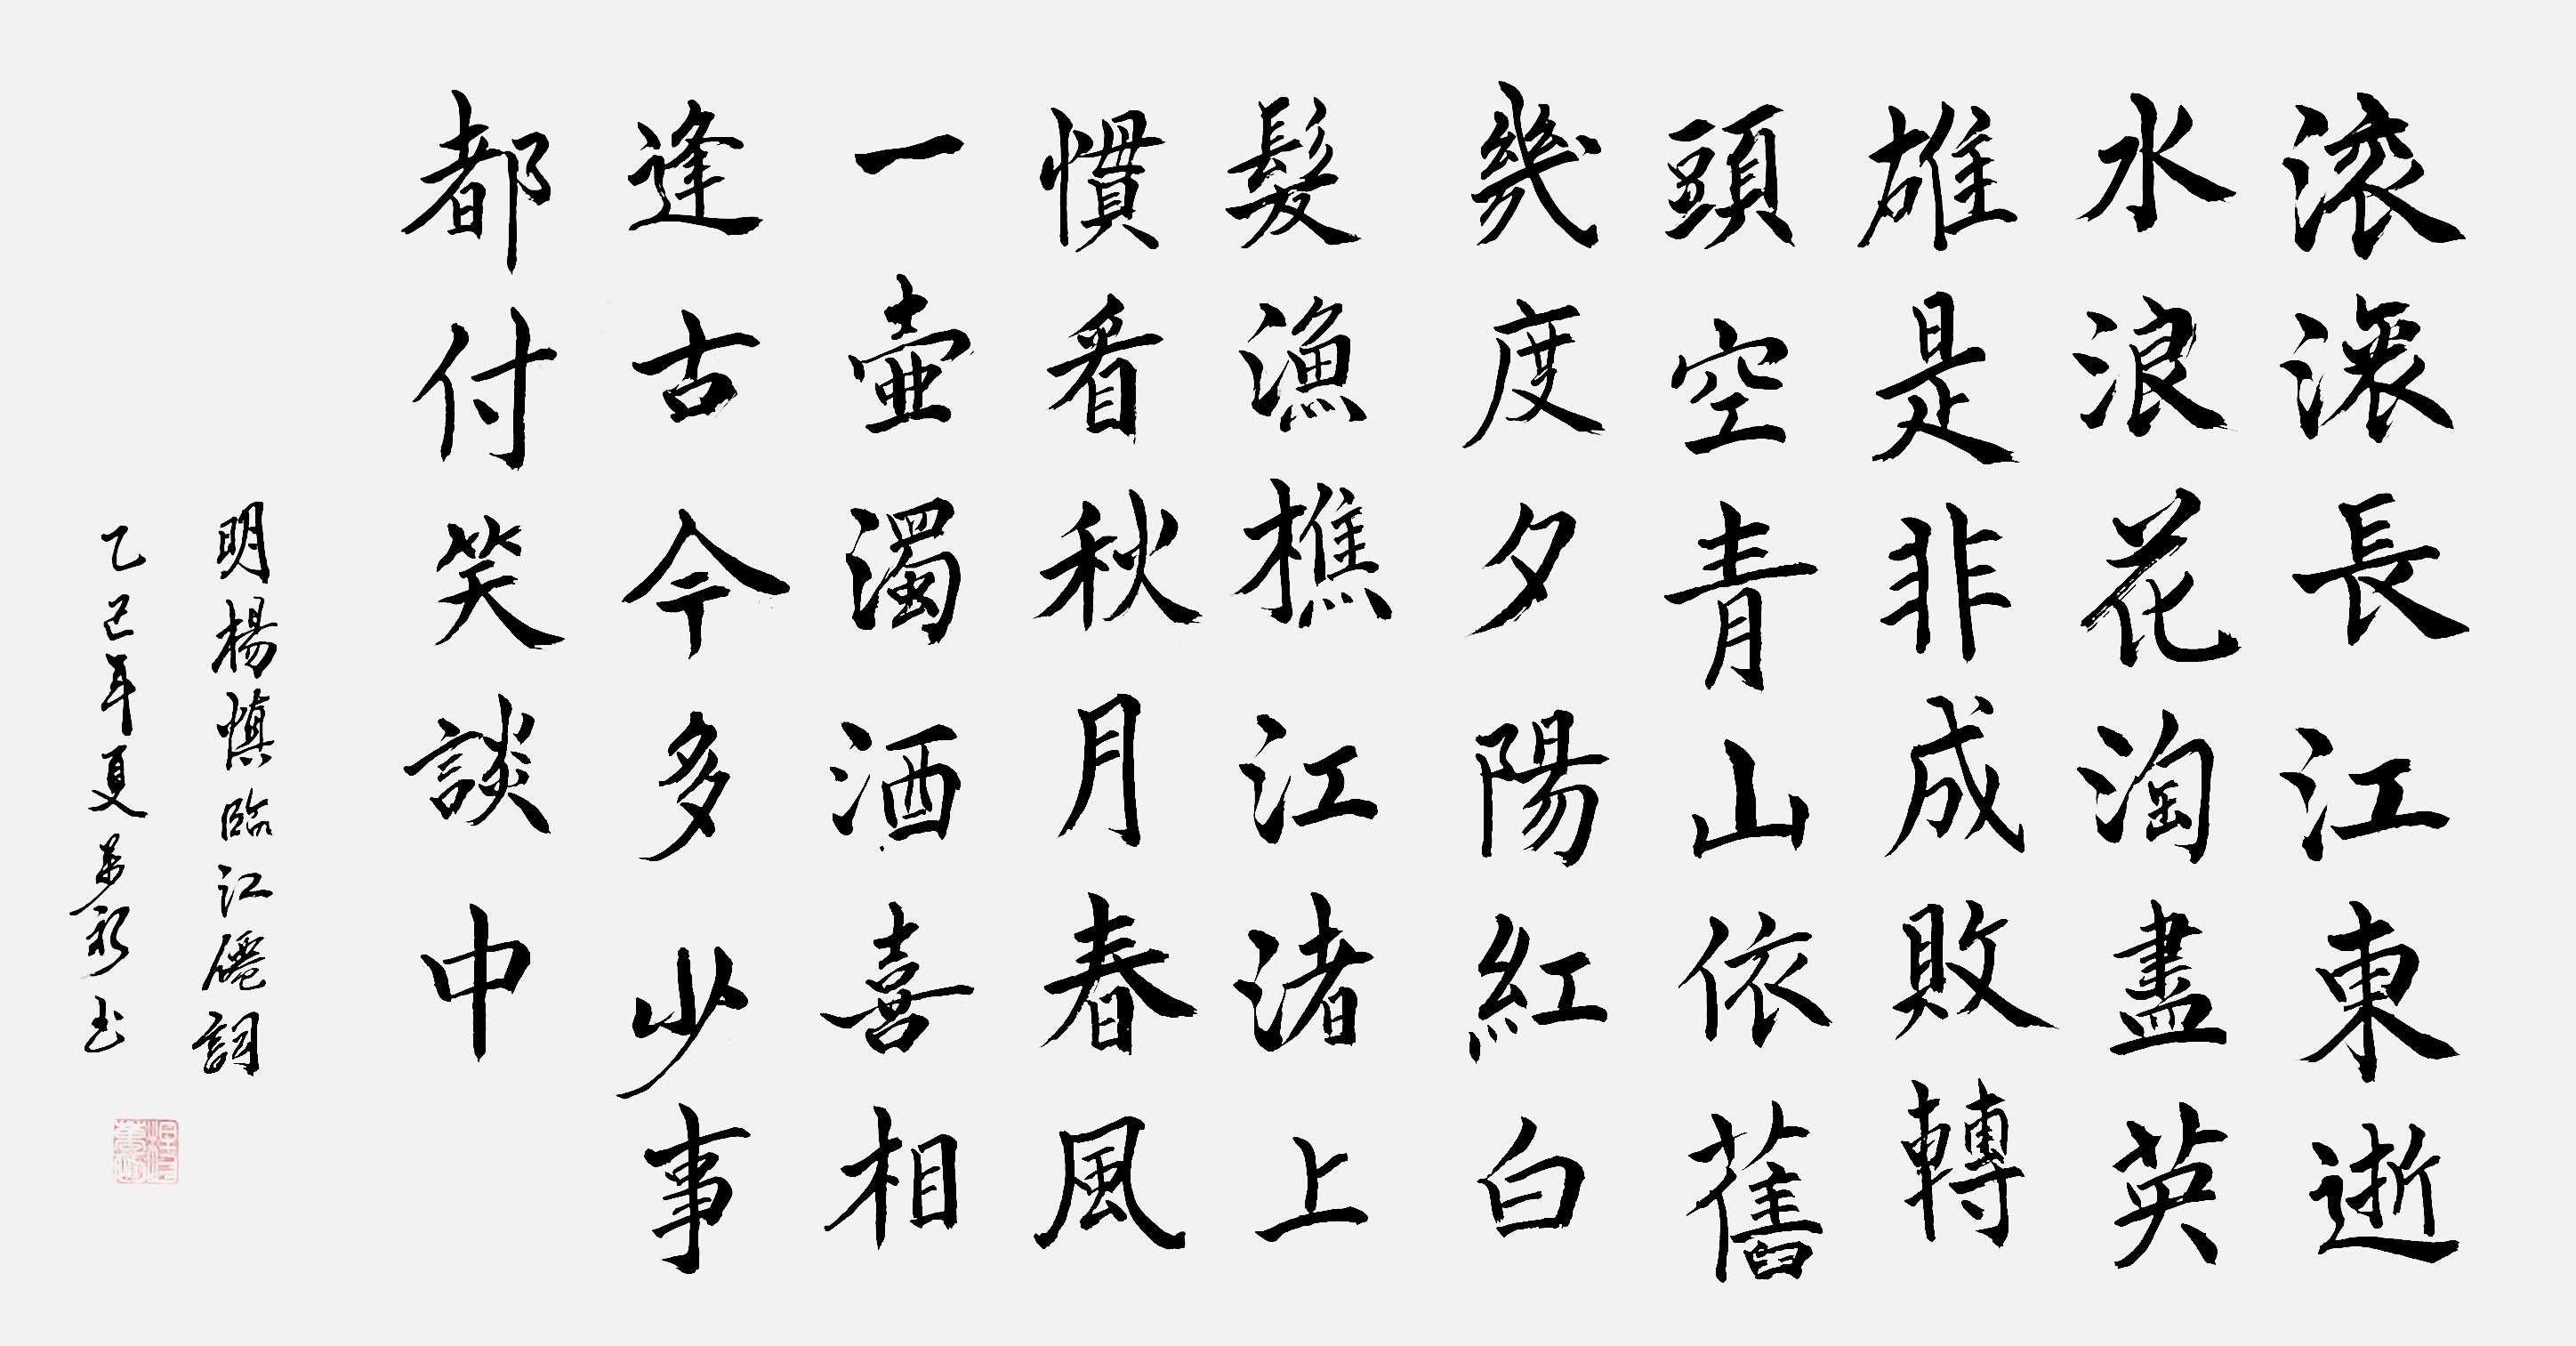 滚滚長江東逝
水浪花淘盡英
雄是非成敗轉
頭空青山依舊
幾度夕陽紅白
髮漁樵江渚上
慣看秋月春風
一壺濁酒喜相
逢古今多少事
都付笑談中
明楊慎臨江僊詞
乙巳年夏